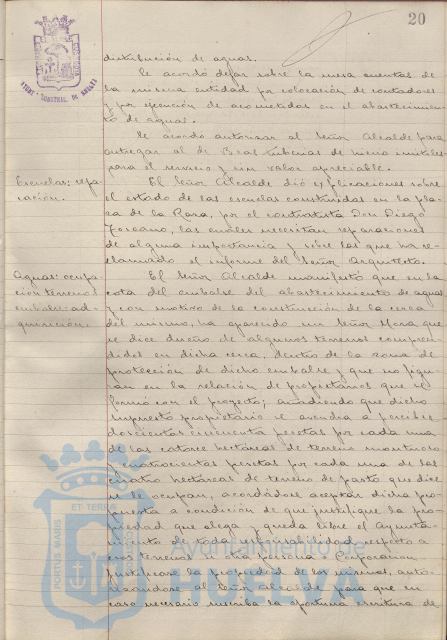 20
distribución de aguas.
Se acordó dejar sobre la mesa cuentas de
la misma entidad por colocación de contadores
y por ejecución de acometidas en el abastecimien-
to de aguas.
Se acordo autorizar al Señor Alcalde para
entregar al de Beas tuberías de hierro inútiles
para el servicio y sin valor apreciable.
Escuelas: repa-
ración.
El Señor Alcalde dió explicaciones sobre
el estado de las escuelas construidas en la pla-
za de la por el contratista Don Diego
las cuales necesitan reparaciones
de alguna importancia y sobre las que ha re-
clamado el informe del Señor Arquitecto.
Aguas: ocupa-
ción terrenos
embalse: ad-
quisición.
El Señor Alcalde manifestó que en la
cota del embalse del abastecimiento de aguas
y con motivo de la construcción de la cerca
del mismo, ha aparecido un Señor Mora que
se dice dueño de algunos terrenos compren-
didos en dicha cerca, dentro de la zona de
protección de dicho embalse y que no figu-
ran en la relación de propietarios que se
formó con el proyecto; añadiendo que dicho
supuesto propietario se avendria a percibir
doscientas cincuenta pesetas por cada una
de las catorce hectáreas de terreno montuoso
y cuatrocientas pesetas por cada una de las
cuatro hectáreas de terreno de pasto que dice
se le ocupan, acordándose aceptar dicha pro-
puesta a condición de que justifique la pro-
piedad que alega y queda libre el ayunta-
miento de toda responsabilidad respecto a
esos terrenos si otra persona o Corporación
justificase la propiedad de los mismos, auto-
rizándose al Señor Alcalde para que en
caso necesario suscriba la oportuna escritura de
Ayuntamiento de
HUELVA
PORTUS MARIS
ET TERRE